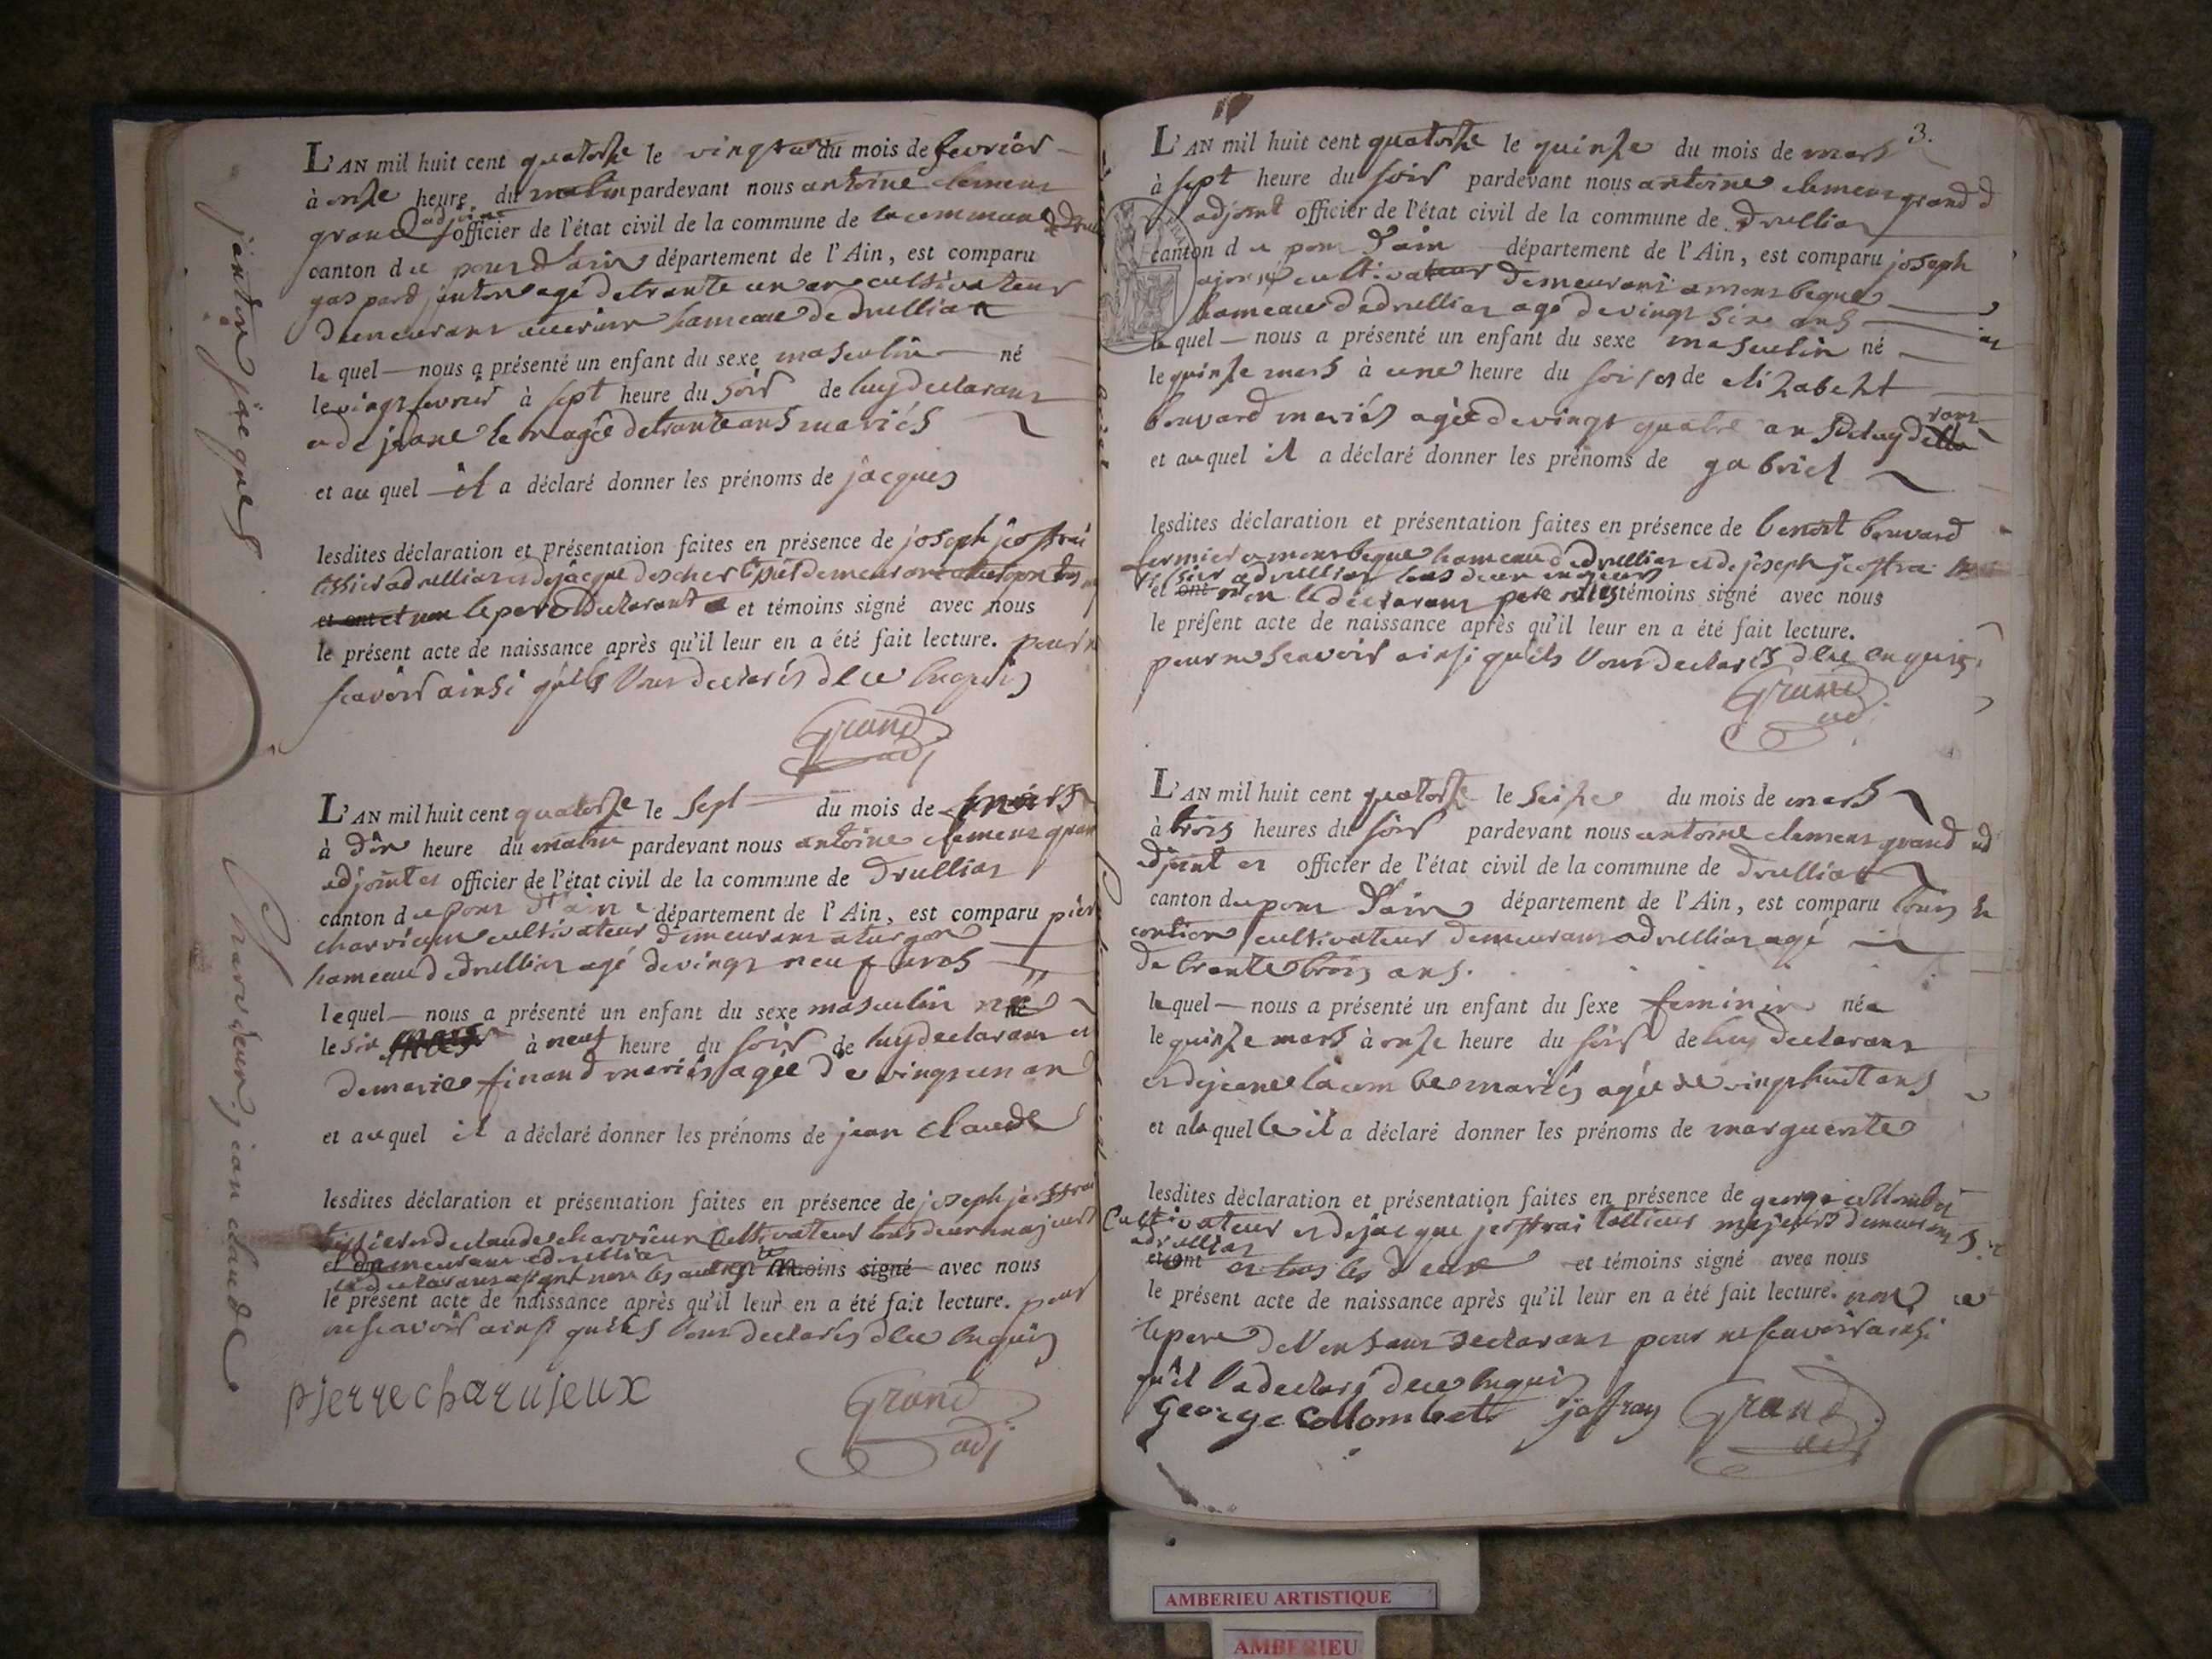 janton jacques
L'AN mil huit cent quatorze le vingt un du mois de fevrier
à onze heure du matin pardevant nous antoine clemens
grand adjoint officier de l'état civil de la commune de la commune de
canton du pons d'ain département de l'Ain, est comparu
gaspard janton agé de trante un an cultivateur
demeurans hameau de drullias
le quel nous a présenté un enfant du sexe masculin né
le vingt fevrier à sept heure du soir de luy declarans
et de agée de trante ans mariés
et au quel il a déclaré donner les prénoms de jacques
lesdites déclaration et présentation faites en présence de joseph
et non le pere declarant et témoins signé avec nous
le présent acte de naissance après qu'il leur en a été fait lecture. pour ne
scavoir ainsi qu'ils l'ons declarés de ce enquis
Grand
adj
charvieux jean claude
L'AN mil huit cent quatorze le sept du mois de mars
à dix heure du matin pardevant nous antoine clemens grand
adjoint et officier de l'état civil de la commune de drullias
canton du pons d'ain département de l'Ain, est comparu pierre
charvieux cultivateur demeurans a turgon
hameau de drullias agé de vingt neuf ans
lequel nous a présenté un enfant du sexe masculin né
le six mars à neuf heure du soir de luy declarans et
de marie finand mariés agée de vingt un an
et au quel il a déclaré donner les prénoms de jean claude
lesdites déclaration et présentation faites en présence de joseph
tissier et de claude charvieux cultivateur tous deux majeurs
demeurans a drullias
le declarans a signé non les autres témoins signé avec nous
le présent acte de naissance après qu'il leur en a été fait lecture. pour
ne scavoir ainsi qu'ils l'ons declarés de ce enquis
pierre charujeux
Grand
adj
3.
L'AN mil huit cent quatorze le quinze du mois de mars
à sept heure du soir pardevant nous antoine clemens grand
adjoint officier de l'état civil de la commune de drullias
canton du pons d'ain département de l'Ain, est comparu joseph
cultivateur demeurans a monsbegue
hameau de drullias agé de vingt sixe ans
le quel nous a présenté un enfant du sexe masculin né
le quinze mars à une heure du soir et de elizabeht
bouvard mariés agée de vingt quatre ans de luy declarans
et au quel il a déclaré donner les prénoms de gabriel
lesdites déclaration et présentation faites en présence de benoit bouvard
fermier a monsbegue hameau de drullias et de joseph
a drullias tous deux majeurs
et non le declarans pere et les témoins signé avec nous
le présent acte de naissance après qu'il leur en a été fait lecture.
pour ne scavoir ainsi qu'ils l'ons declarés de ce enquis
Grand
ad
L'AN mil huit cent quatorze le seize du mois de mars
à trois heures du soir pardevant nous antoine clemens grand ad
djoint et officier de l'état civil de la commune de drullias
canton du pons d'ain département de l'Ain, est comparu louis
cultivateur demeurans a drullias agé
de trante trois ans.
le quel nous a présenté un enfant du sexe feminin née
le quinze mars à onze heure du soir de luy declarans
et de jeane lacombe mariés agée de vingt huit ans
et a la quelle il a déclaré donner les prénoms de marguerite
lesdites déclaration et présentation faites en présence de george collombet
cultivateur et de jacque tallieur majeurs demeurans
a drullias
ont et tous les deux et témoins signé avec nous
le présent acte de naissance après qu'il leur en a été fait lecture. non
le pere de l'enfans declarans pour ne scavoir ainsi
qu'il l'a declaré de ce enquis
George Collombet joffray Grand
adj
AMBERIEU ARTISTIQUE
AMBERIEU